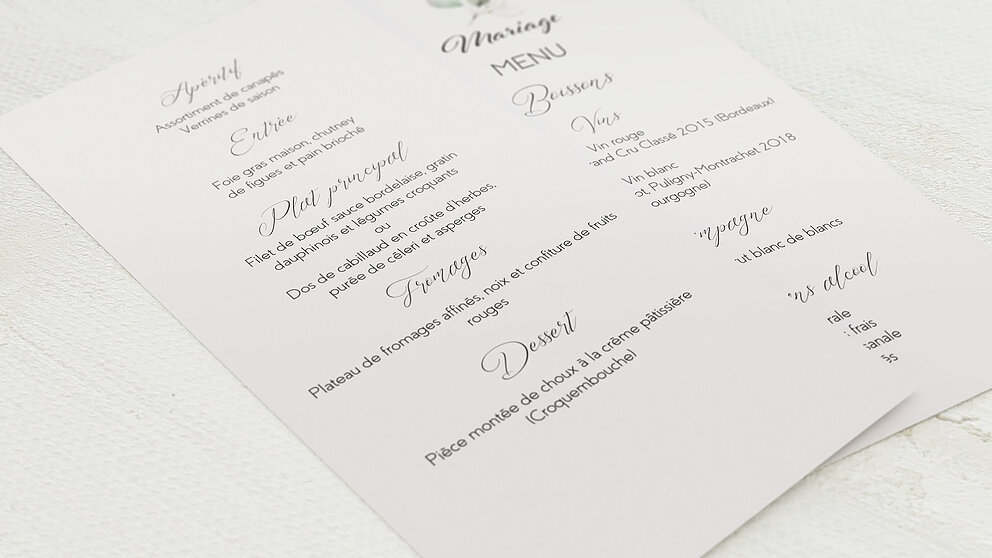 Apéritif
Assortiment de canapés
Verrines de saison
Entrée
Foie gras maison, chutney
de figues et pain brioché
Plat principal
Filet de bœuf sauce bordelaise, gratin
dauphinois et légumes croquants
ou
Dos de cabillaud en croûte d'herbes,
purée de céleri et asperges
Fromages
Plateau de fromages affinés, noix et confiture de fruits
rouges
Dessert
Pièce montée de choux à la crème pâtissière
(Croquembouche)
Mariage
MENU
Boissons
Vins
Vin rouge
and Cru Classé 2015 (Bordeaux)
Vin blanc
ot, Puligny-Montrachet 2018
ourgogne)
mpagne
ut blanc de blancs
ns alcool
rale
frais
sanale
és